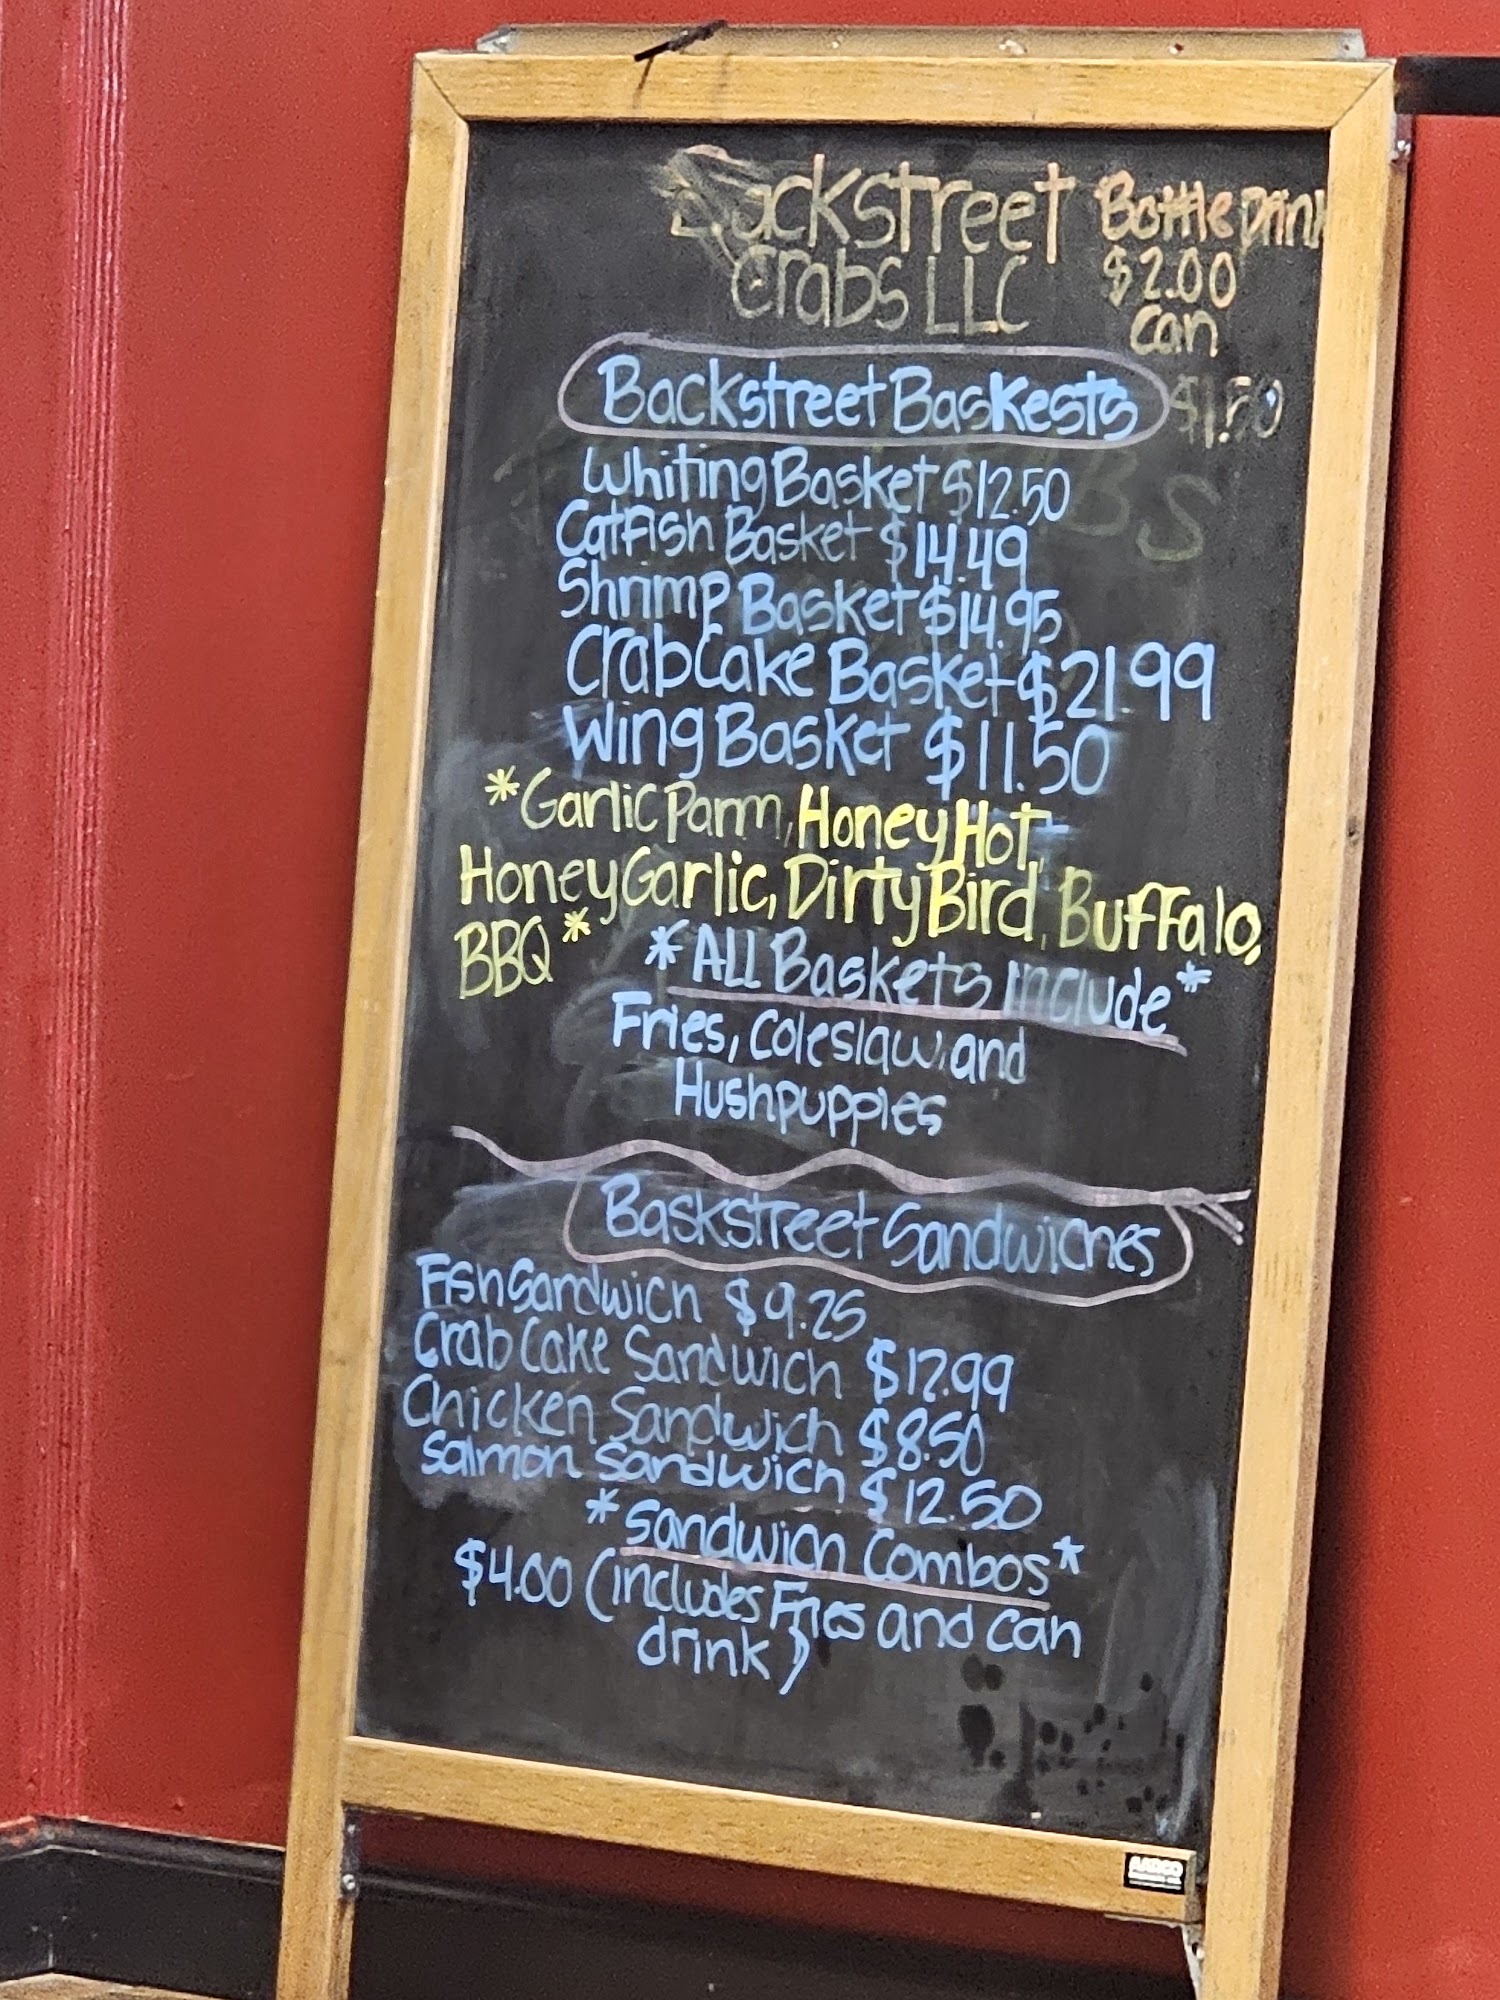 Backstreet
Crabs LLC
Bottle Drink
$2.00
can
$1.50
Backstreet Baskests
Whiting Basket $12.50
Catfish Basket $14.49
Shrimp Basket $14.95
Crab Cake Basket $21.99
Wing Basket $11.50
*Garlic Parm, Honey Hot,
Honey Garlic, Dirty Bird, Buffalo,
BBQ*
*ALL Baskets Include*
Fries, Coleslaw, and
Hushpuppies
Baskstreet Sandwiches
Fish Sandwich $9.25
Crab Cake Sandwich $17.99
Chicken Sandwich $8.50
Salmon Sandwich $12.50
*Sandwich Combos*
$4.00 (includes Fries and can
drink)